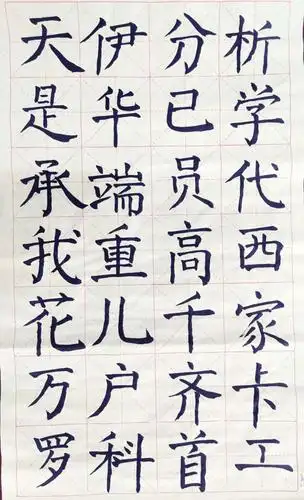 天伊分析
是华已学
承端员代
我重高西
花儿千家
万户齐卡
罗科首工